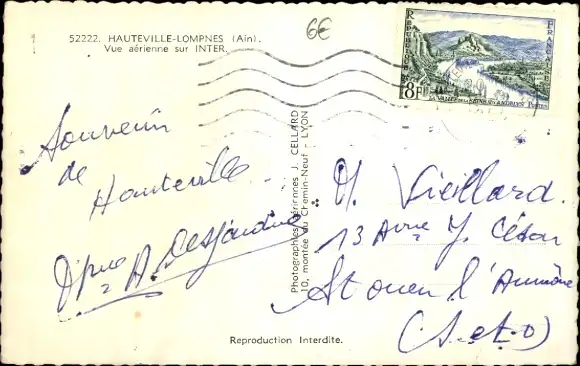 52222. HAUTEVILLE-LOMPNES (Ain).
Vue aérienne sur INTER.
6€
RÉPUBLIQUE FRANÇAISE
8F
LA VALLÉE DE LA SEINE AUX ANDELYS POSTES
Souvenir
de
Hauteville
A. Desjardins
Photographies aériennes J. CELLARD
10, montée du Chemin-Neuf : LYON
M. Vieillard.
13 Avnue J. César
St Ouen l'Aumône
(S. et O)
Reproduction Interdite.